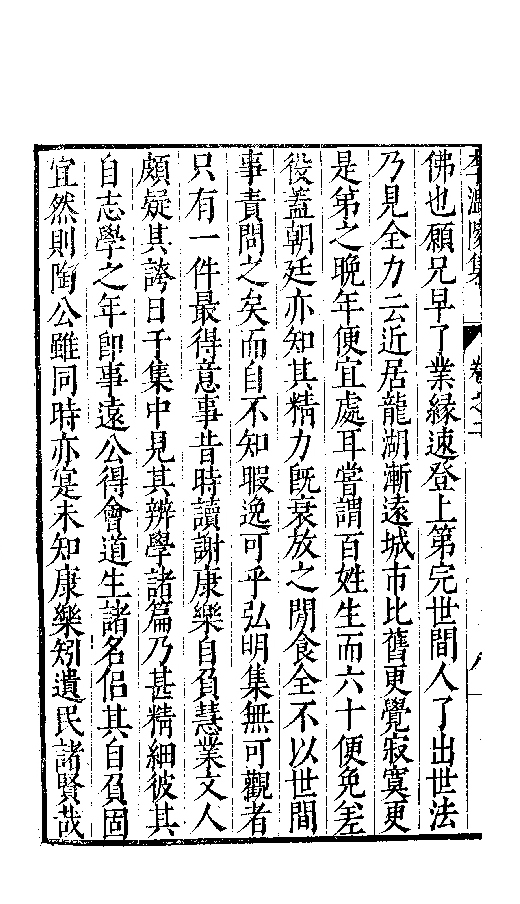 李温陵集 卷之二 八
佛也願兄早了業緣速登上第完世間人了出世法
乃見全力云近居龍湖漸遠城市比舊更覺寂寞更
是第之晚年便宜處耳嘗謂百姓生而六十便免差
役蓋朝廷亦知其精力既衰放之閒食全不以世間
事責問之矣而自不知暇逸可乎弘明集無可觀者
只有一件最得意事昔時讀謝康樂自負慧業文人
頗疑其誇日于集中見其辨學諸篇乃甚精細彼其
自志學之年即事遠公得會道生諸名侶其自負固
宜然則陶公雖同時亦寔未知康樂矧遺民諸賢哉